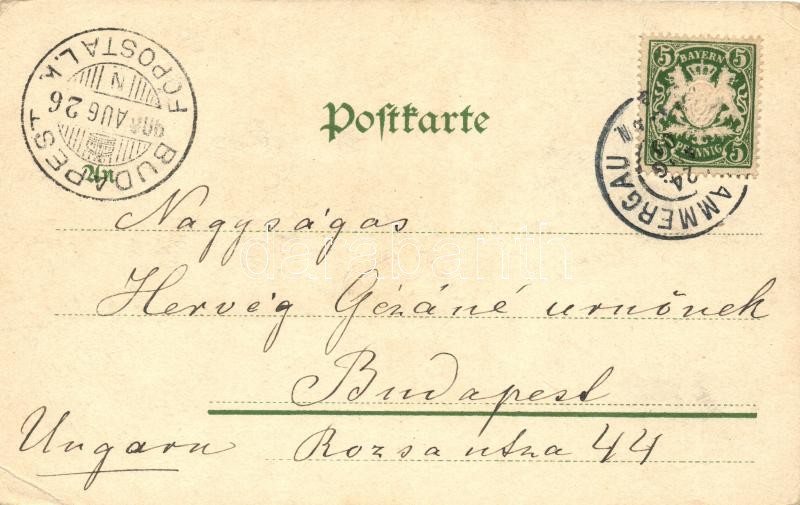 BUDAPEST FŐPOSTA L.k.
N
900 AUG 26
Postkarte
An
BAYERN
5 5
PFENNIG
5 5
AMMERGAU
24
Nagyságos
darabanth
Hervég Gézáné urnőnek
Budapest
Ungarn Rozsa utza 44